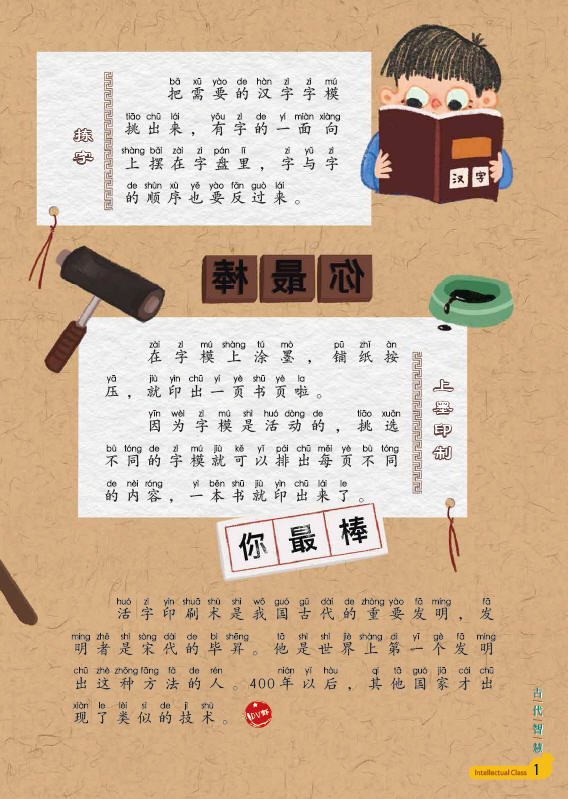 拣字
bǎ xū yào de hàn zì zì mú
把需要的汉字字模
tiāo chū lái yǒu zì de yí miàn xiàng
挑出来，有字的一面向
shàng bǎi zài zì pán lǐ zì yǔ zì
上摆在字盘里，字与字
de shùn xù yě yào fǎn guò lái
的顺序也要反过来。
汉字
棒最你
上墨印制
zài zì mú shàng tú mò pū zhǐ àn
在字模上涂墨，铺纸按
yā jiù yìn chū yí yè shū yè la
压，就印出一页书页啦。
yīn wèi zì mú shì huó dòng de tiāo xuǎn
因为字模是活动的，挑选
bù tóng de zì mú jiù kě yǐ pái chū měi yè bù tóng
不同的字模就可以排出每页不同
de nèi róng yì běn shū jiù yìn chū lái le
的内容，一本书就印出来了。
你最棒
huó zì yìn shuā shù shì wǒ guó gǔ dài de zhòng yào fā míng fā
活字印刷术是我国古代的重要发明，发
míng zhě shì sòng dài de bì shēng tā shì shì jiè shàng dì yī gè fā míng
明者是宋代的毕昇。他是世界上第一个发明
chū zhè zhǒng fāng fǎ de rén nián yǐ hòu qí tā guó jiā cái chū
出这种方法的人。400年以后，其他国家才出
xiàn le lèi sì de jì shù
现了类似的技术。
古代智慧
Intellectual Class 1